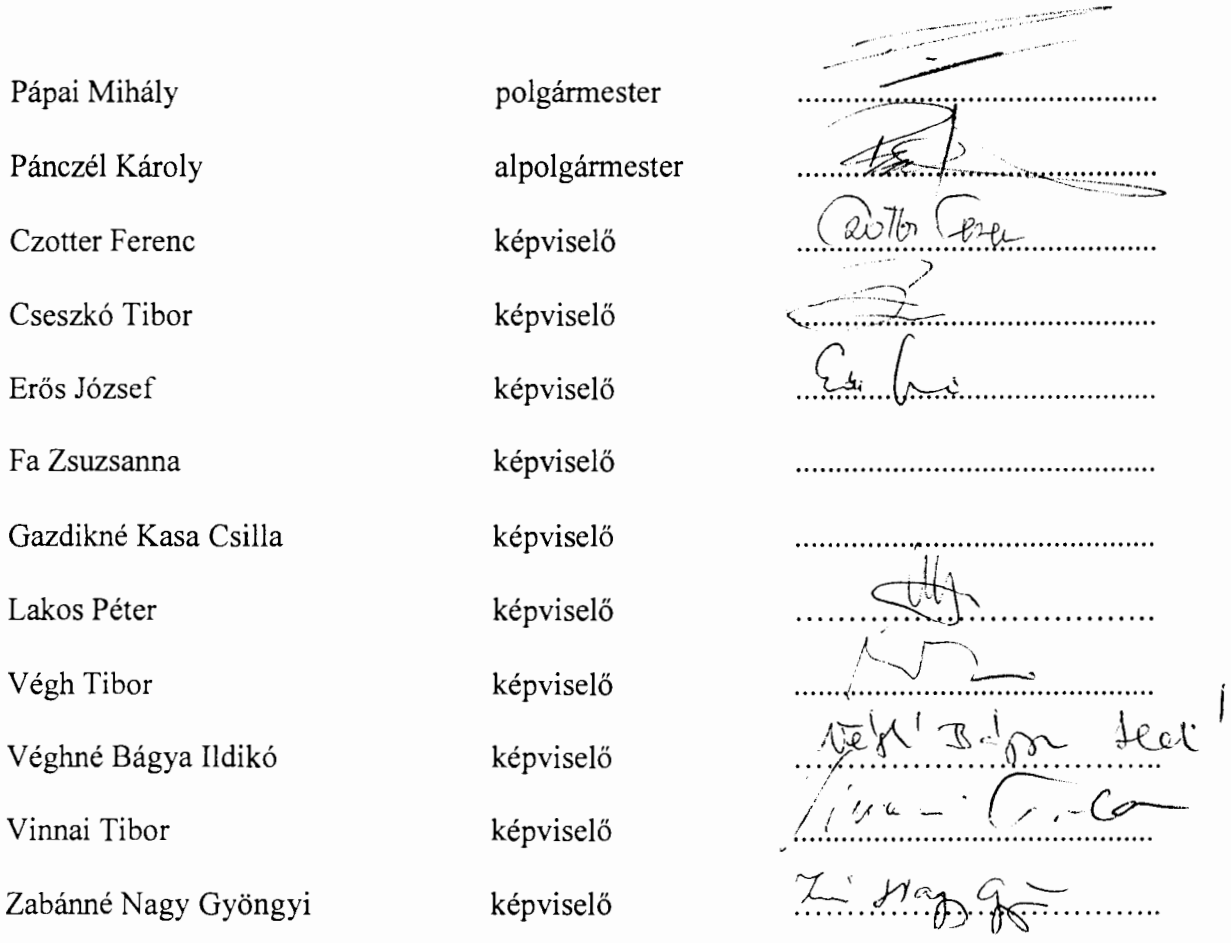 Pápai Mihály polgármester ..........
Pánczél Károly alpolgármester ..........
Czotter Ferenc képviselő ..........
Cseszkó Tibor képviselő ..........
Erős József képviselő ..........
Fa Zsuzsanna képviselő ..........
Gazdikné Kasa Csilla képviselő ..........
Lakos Péter képviselő ..........
Végh Tibor képviselő ..........
Véghné Bágya Ildikó képviselő ..........
Vinnai Tibor képviselő ..........
Zabánné Nagy Gyöngyi képviselő .......... Nagy